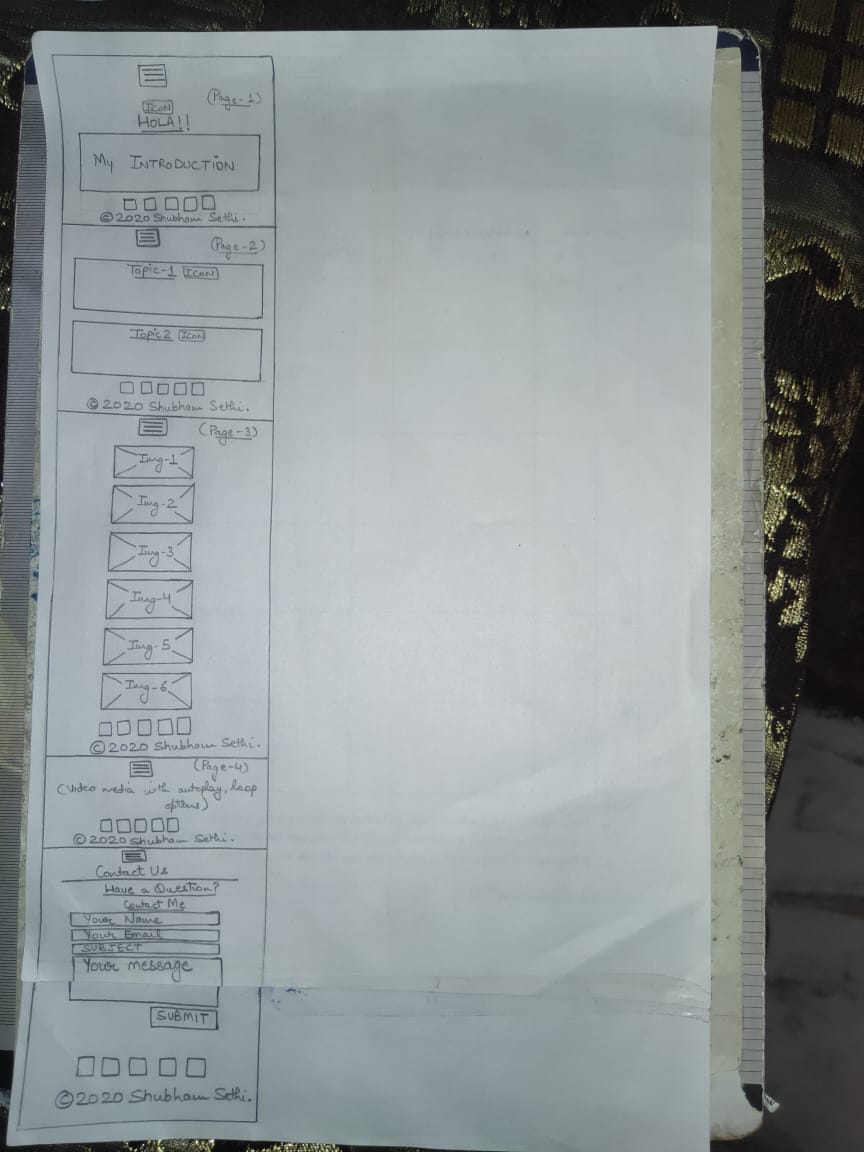 (Page-1)
ICON
HOLA!!
My INTRODUCTION
©2020 Shubham Sethi.
(Page-2)
Topic-1 ICON
Topic 2 ICON
©2020 Shubham Sethi.
(Page-3)
Img-1
Img-2
Img-3
Img-4
Img-5
Img-6
©2020 Shubham Sethi.
(Page-4)
(Video media with autoplay, loop
options)
©2020 Shubham Sethi.
Contact Us
Have a Question?
Contact Me
Your Name
Your Email
SUBJECT
Your message
SUBMIT
©2020 Shubham Sethi.